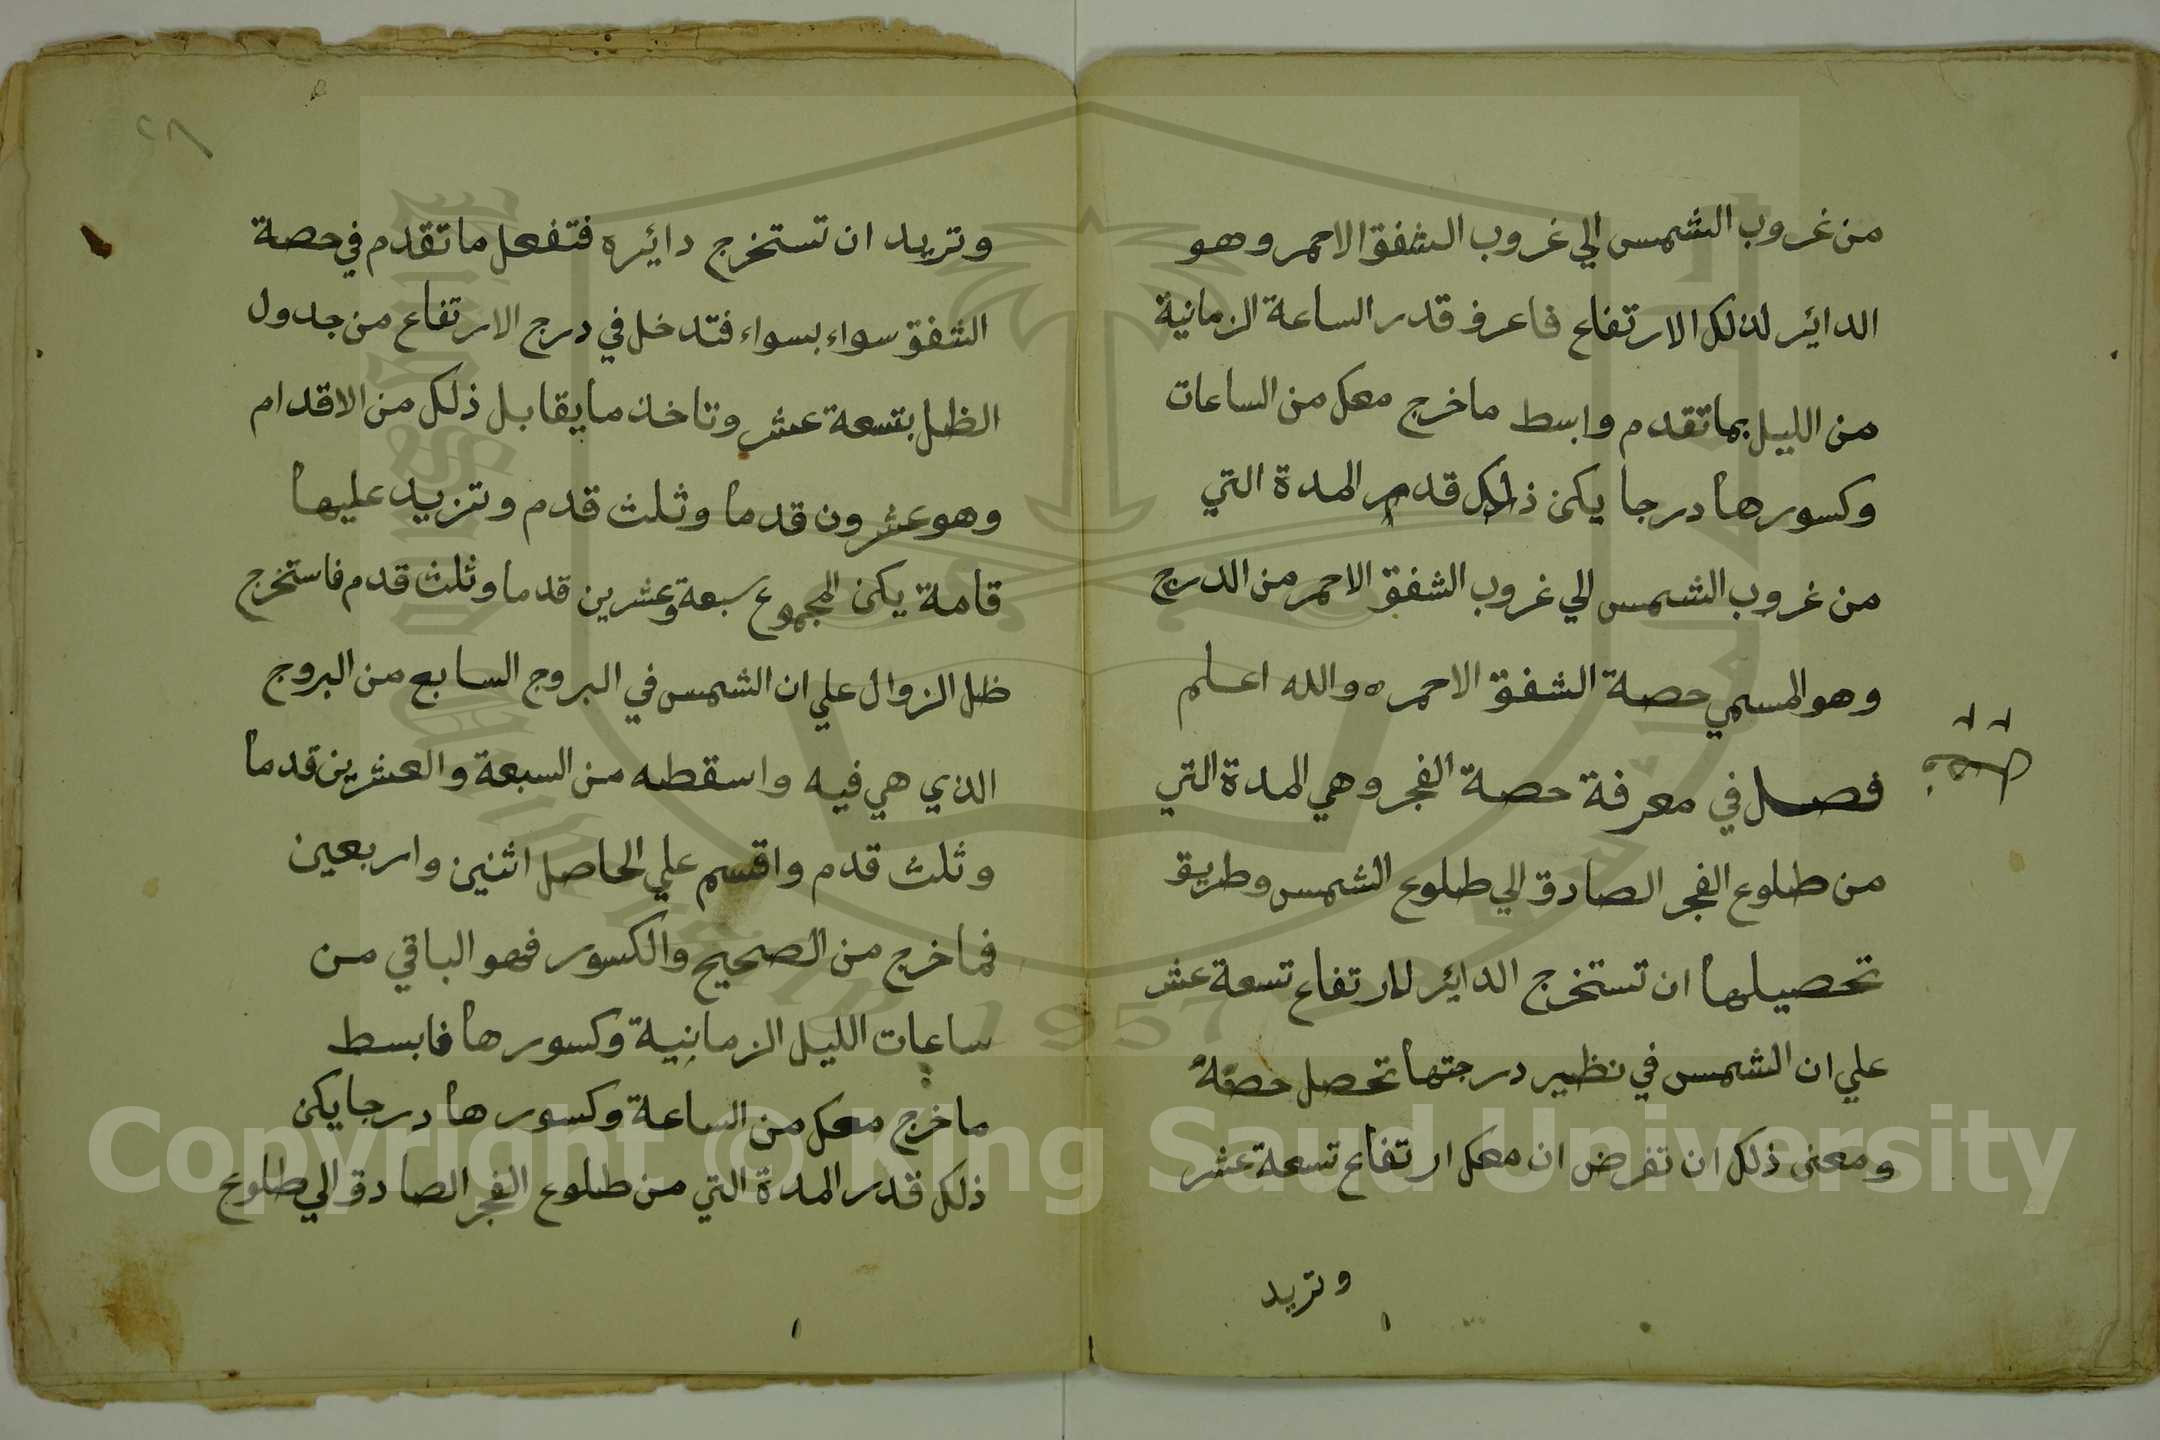 من غروب الشمس الي غروب الشفق الاحمر وهو
الدائير لذلك الارتفاع فاعرف قدر الساعة الزمانية
من الليل بما تقدم وابسط ماخرج معك من الساعات
وكسورها درجا يكن ذلك قدر المدة التي
من غروب الشمس الي غروب الشفق الاحمر من الدرج
وهو المسمي حصة الشفق الاحمر ه والله اعلم
فصل في معرفة حصة الفجر وهي المدة التي
من طلوع الفجر الصادق الي طلوع الشمس وطريق
تحصيلها ان تستخرج الدايئر للارتفاع تسعة عشر
علي ان الشمس في نظير درجتها تحصل حصة
ومعنى ذلك ان تفرض ان معك ارتفاع تسعة عشر
وتريد
٢٨
وتريد ان تستخرج دائيره فتفعل ما تقدم في حصة
الشفق سواء بسواء فتدخل في درج الارتفاع من جدول
الظل بتسعة عشر وتاخذ ما يقابل ذلك من الاقدام
وهو عشرون قدما وثلث قدم وتزيد عليها
قامة يكن المجموع سبعة وعشرين قدما وثلث قدم فاستخرج
ظل الزوال علي ان الشمس في البروج السابع من البروج
الذي هي فيه واسقطه من السبعة والعشرين قدما
وثلث قدم واقسم علي الحاصل اثنين واربعين
فما خرج من الصحيح والكسور فهو الباقي من
ساعات الليل الزمانية وكسورها فابسط
ماخرج معك من الساعة وكسورها درجا يكن
ذلك قدر المدة التي من طلوع الفجر الصادق الي طلوع
Copyright © King Saud University
1957